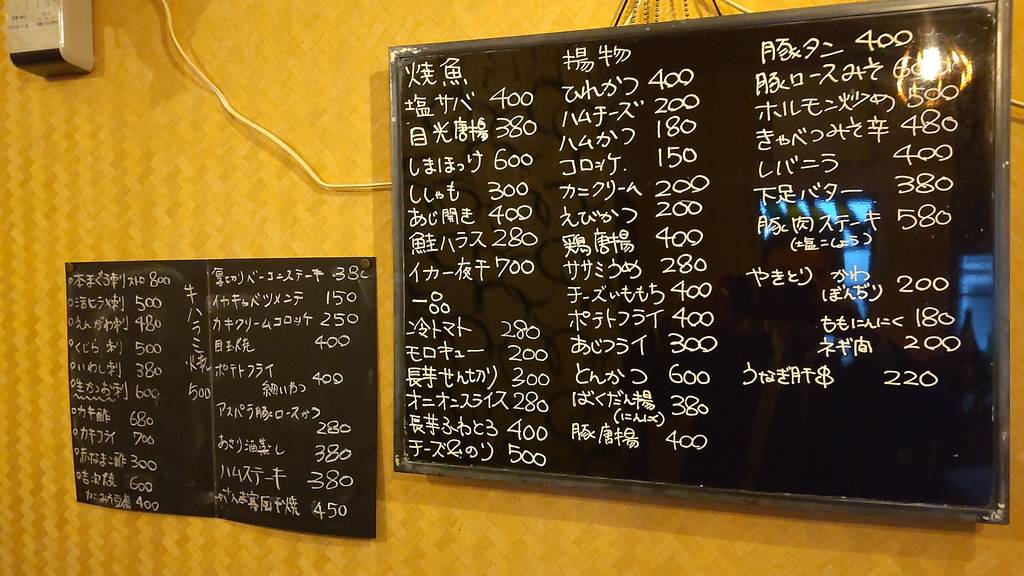 焼魚
塩サバ 400
目光唐揚 380
しまほっけ 600
ししゃも 300
あじ開き 400
鮭ハラス 280
イカ一夜干 700
一品
冷トマト 280
モロキュー 200
長芋せんぎり 300
オニオンスライス 280
長芋ふわとろ 400
チーズ&のり 500
揚物
ひれかつ 400
ハムチーズ 200
ハムかつ 180
コロッケ 150
カニクリーム 200
えびかつ 200
鶏唐揚 400
ササミうめ 280
チーズいももち 400
ポテトフライ 400
あじフライ 300
とんかつ 600
ばくだん揚 380
(にんにく)
豚唐揚 400
豚タン 400
豚ロースみそ 600
ホルモン炒め 500
きゃべつみそ辛 480
レバニラ 400
下足バター 380
豚肉ステーキ 580
(塩こしょう)
やきとり かわ
ぼんぢり 200
ももにんにく 180
ネギ間 200
うなぎ肝串 220
本まぐろ刺 800
活ヒラメ刺 500
えんがわ刺 480
くじら刺 500
いわし刺 380
生かつお刺 600
カキ酢 680
カキフライ 700
赤なまこ酢 300
吉次焼 600
かにみそ豆腐 400
牛ハラミ焼
500
厚切りベーコンステーキ 380
イカキャベツメンチ 150
カキクリームコロッケ 250
目玉焼 400
ポテトフライ
細いやつ 400
アスパラ豚ロースかつ
280
あさり酒蒸し 380
ハムステーキ 380
450